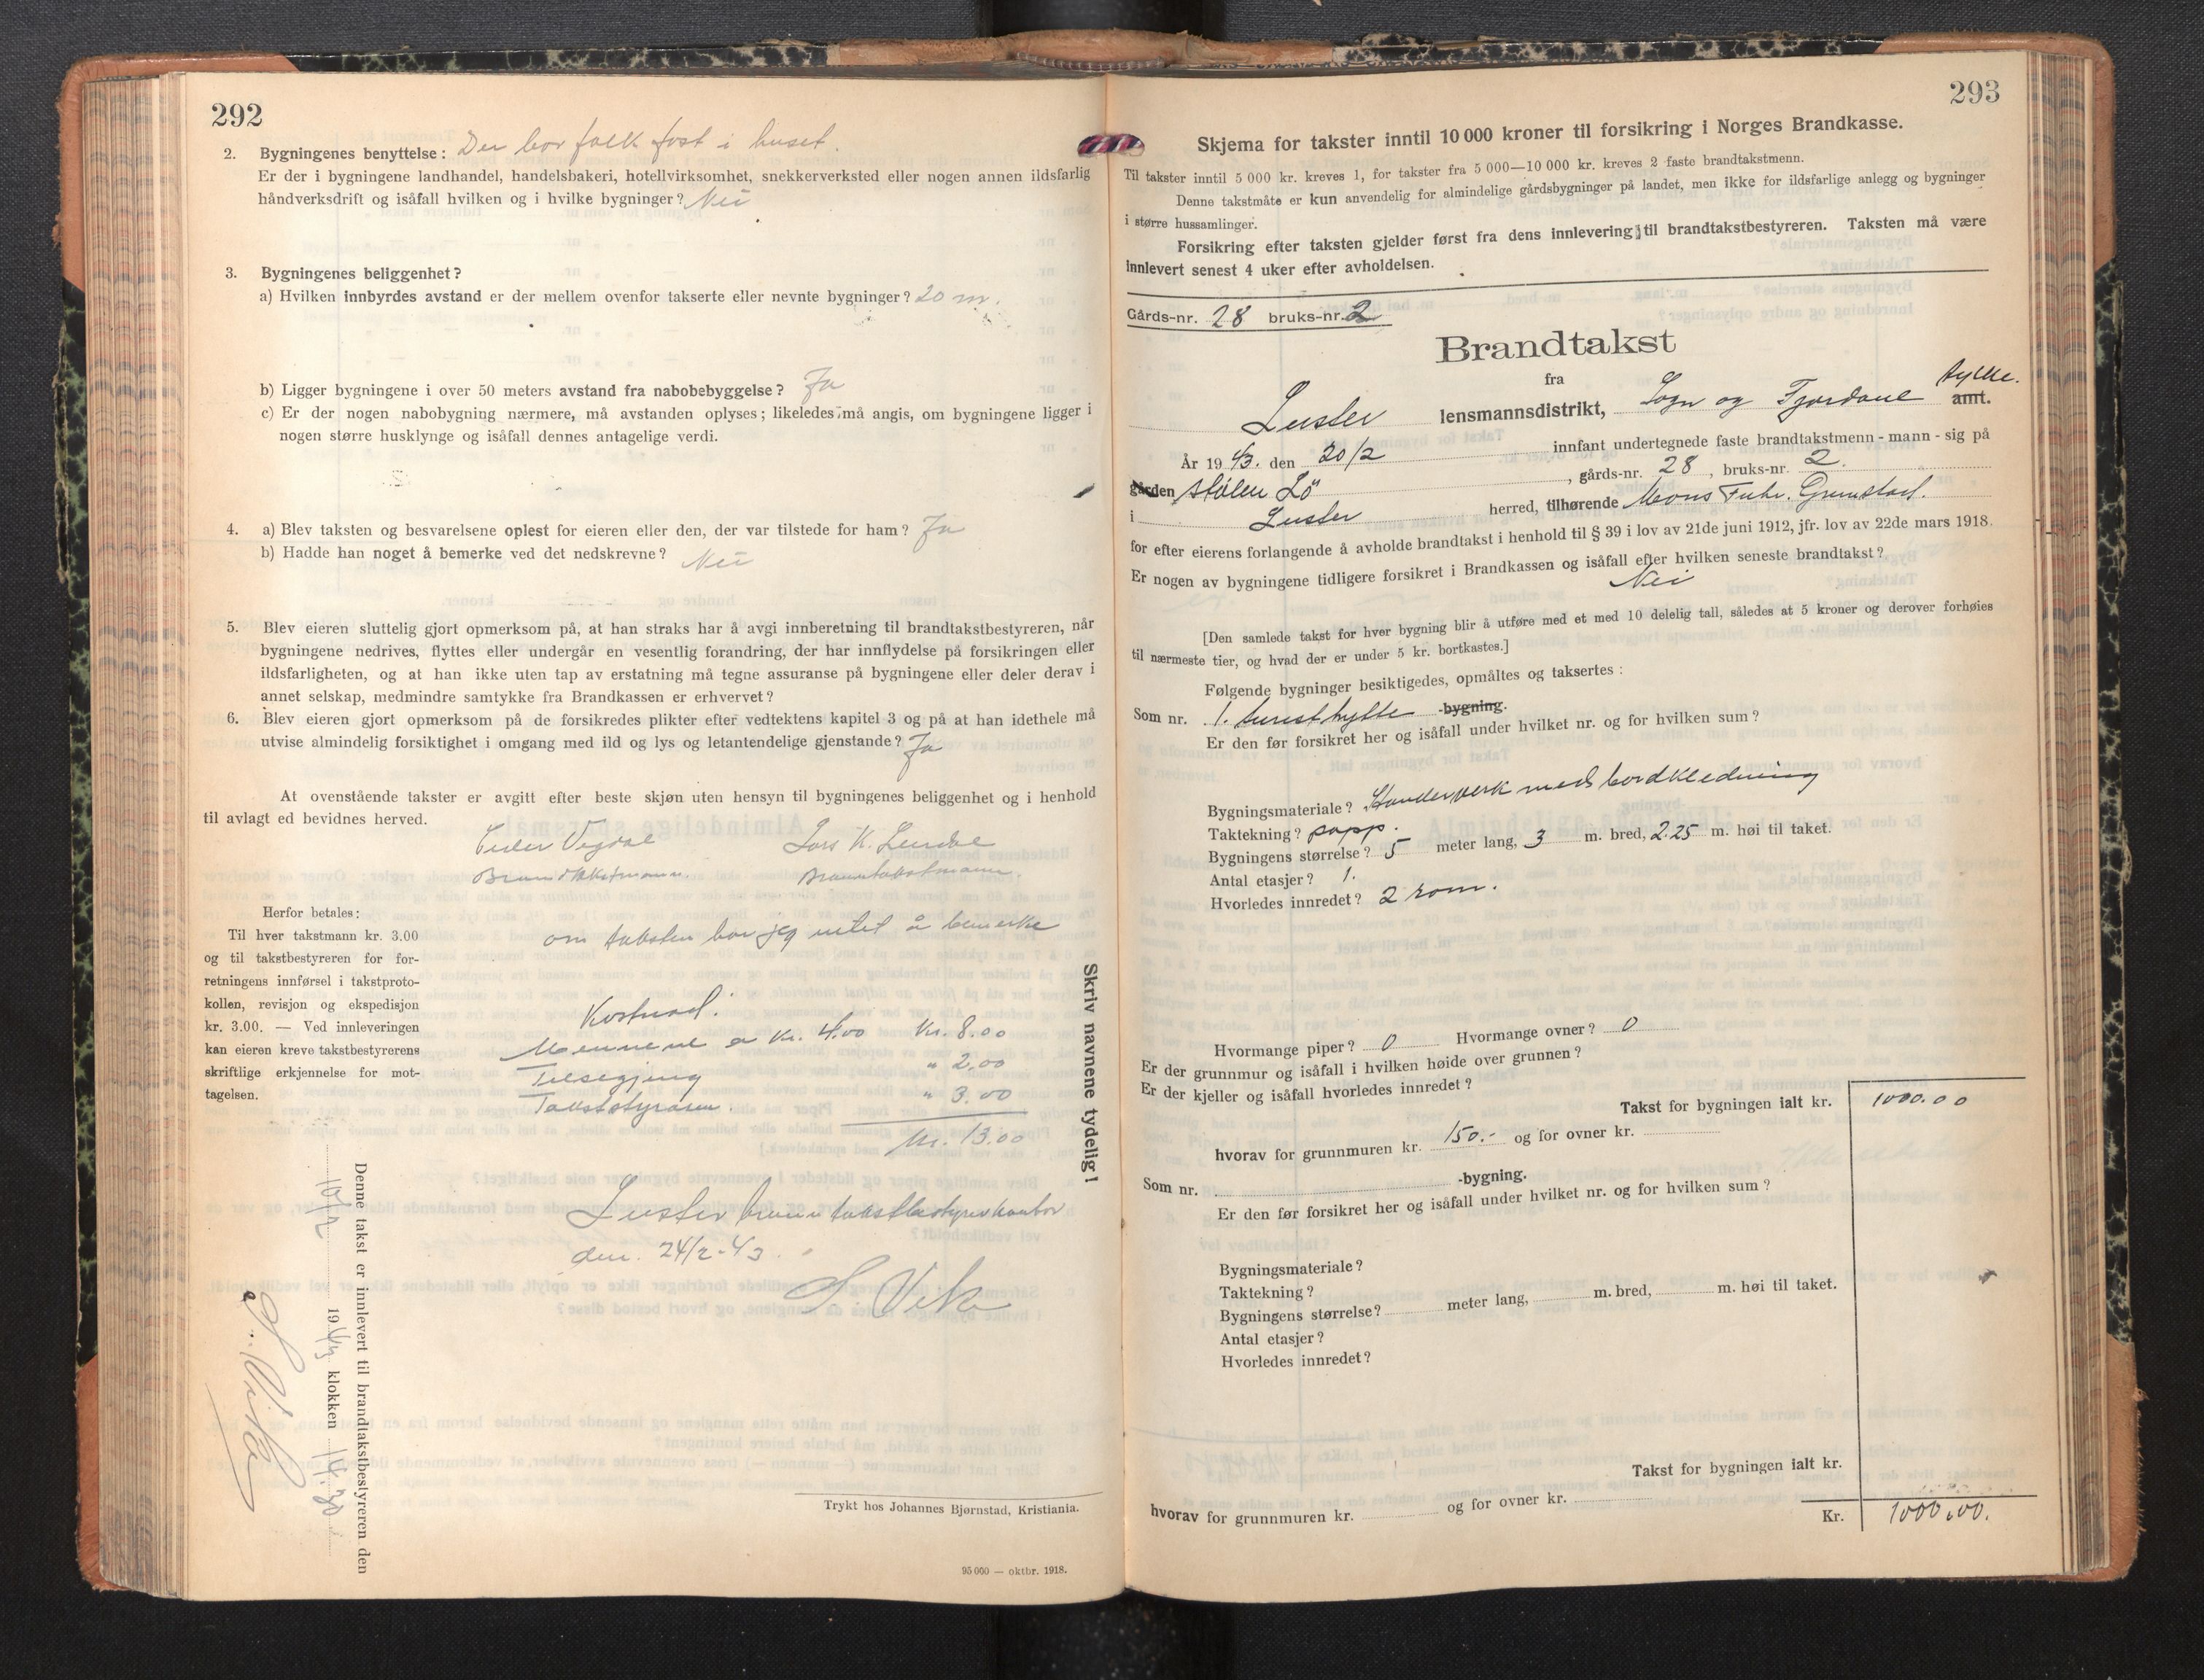 292
2. Bygningenes benyttelse: Der bor folk fast i huset.
Er der i bygningene landhandel, handelsbakeri, hotellvirksomhet, snekkerverksted eller nogen annen ildsfarlig
håndverksdrift og isåfall hvilken og i hvilke bygninger? Nei
3. Bygningenes beliggenhet?
a) Hvilken innbyrdes avstand er der mellem ovenfor takserte eller nevnte bygninger? 20 m.
b) Ligger bygningene i over 50 meters avstand fra nabobebyggelse? Ja
c) Er der nogen nabobygning nærmere, må avstanden oplyses; likeledes må angis, om bygningene ligger i
nogen større husklynge og isåfall dennes antagelige verdi.
4. a) Blev taksten og besvarelsene oplest for eieren eller den, der var tilstede for ham? Ja
b) Hadde han noget å bemerke ved det nedskrevne? Nei
5. Blev eieren sluttelig gjort opmerksom på, at han straks har å avgi innberetning til brandtakstbestyreren, når
bygningene nedrives, flyttes eller undergår en vesentlig forandring, der har innflydelse på forsikringen eller
ildsfarligheten, og at han ikke uten tap av erstatning må tegne assuranse på bygningene eller deler derav i
annet selskap, medmindre samtykke fra Brandkassen er erhvervet?
6. Blev eieren gjort opmerksom på de forsikredes plikter efter vedtektens kapitel 3 og på at han idethele må
utvise almindelig forsiktighet i omgang med ild og lys og letantendelige gjenstande? Ja
At ovenstående takster er avgitt efter beste skjøn uten hensyn til bygningenes beliggenhet og i henhold
til avlagt ed bevidnes herved.
Lars K.
Branntakstmann. Branntakstmann.
Herfor betales:
Til hver takstmann kr. 3.00
og til takstbestyreren for for-
retningens innførsel i takstproto-
kollen, revisjon og ekspedisjon
kr. 3.00. — Ved innleveringen
kan eieren kreve takstbestyrerens
skriftlige erkjennelse for mot-
tagelsen.
om taksten har jeg intet å bemerke
Kostnad:
Mennene a Kr. 4.00 Kr. 8.00
Tilsegjing " 2.00
Takstbestyraren. " 3.00
Kr. 13.00
Luster branntakstbestyrerkontor
den. 24/2-43.
S. Vik
Skriv navnene tydelig!
Denne takst er innlevert til brandtakstbestyreren den
19 43 klokken 14.30
S. Vik
Trykt hos Johannes Bjørnstad, Kristiania.
95 000 — oktbr. 1918.
293
Skjema for takster inntil 10 000 kroner til forsikring i Norges Brandkasse.
Til takster inntil 5 000 kr. kreves 1, for takster fra 5 000—10 000 kr. kreves 2 faste brandtakstmenn.
Denne takstmåte er kun anvendelig for almindelige gårdsbygninger på landet, men ikke for ildsfarlige anlegg og bygninger
i større hussamlinger.
Forsikring efter taksten gjelder først fra dens innlevering til brandtakstbestyreren. Taksten må være
innlevert senest 4 uker efter avholdelsen.
Gårds-nr. 28 bruks-nr. 2
Brandtakst
fra
Luster lensmannsdistrikt, Sogn og Fjordane fylke. amt.
År 19 43. den 20/2 innfant undertegnede faste brandtakstmenn - mann - sig på
gården stølen Lö , gårds-nr. 28, bruks-nr. 2.
i Luster herred, tilhørende Mons Fuhr. Grimstad.
for efter eierens forlangende å avholde brandtakst i henhold til § 39 i lov av 21de juni 1912, jfr. lov av 22de mars 1918.
Er nogen av bygningene tidligere forsikret i Brandkassen og isåfall efter hvilken seneste brandtakst?
Nei
[Den samlede takst for hver bygning blir å utføre med et med 10 delelig tall, således at 5 kroner og derover forhøies
til nærmeste tier, og hvad der er under 5 kr. bortkastes.]
Følgende bygninger besiktigedes, opmåltes og taksertes:
Som nr. 1. turisthytte -bygning.
Er den før forsikret her og isåfall under hvilket nr. og for hvilken sum?
Bygningsmateriale? Standerverk med bordkledning
Taktekning? papp.
Bygningens størrelse? 5 meter lang, 3 m. bred, 2.25 m. høi til taket.
Antal etasjer? 1.
Hvorledes innredet? 2 rom.
Hvormange piper? 0 Hvormange ovner? 0
Er der grunnmur og isåfall i hvilken høide over grunnen?
Er der kjeller og isåfall hvorledes innredet?
Takst for bygningen ialt kr. 1000.00
hvorav for grunnmuren kr. 150.- og for ovner kr.
Som nr. -bygning.
Er den før forsikret her og isåfall under hvilket nr. og for hvilken sum?
Bygningsmateriale?
Taktekning?
Bygningens størrelse? meter lang, m. bred, m. høi til taket.
Antal etasjer?
Hvorledes innredet?
Takst for bygningen ialt kr.
hvorav for grunnmuren kr. og for ovner kr.
Kr. 1000.00.